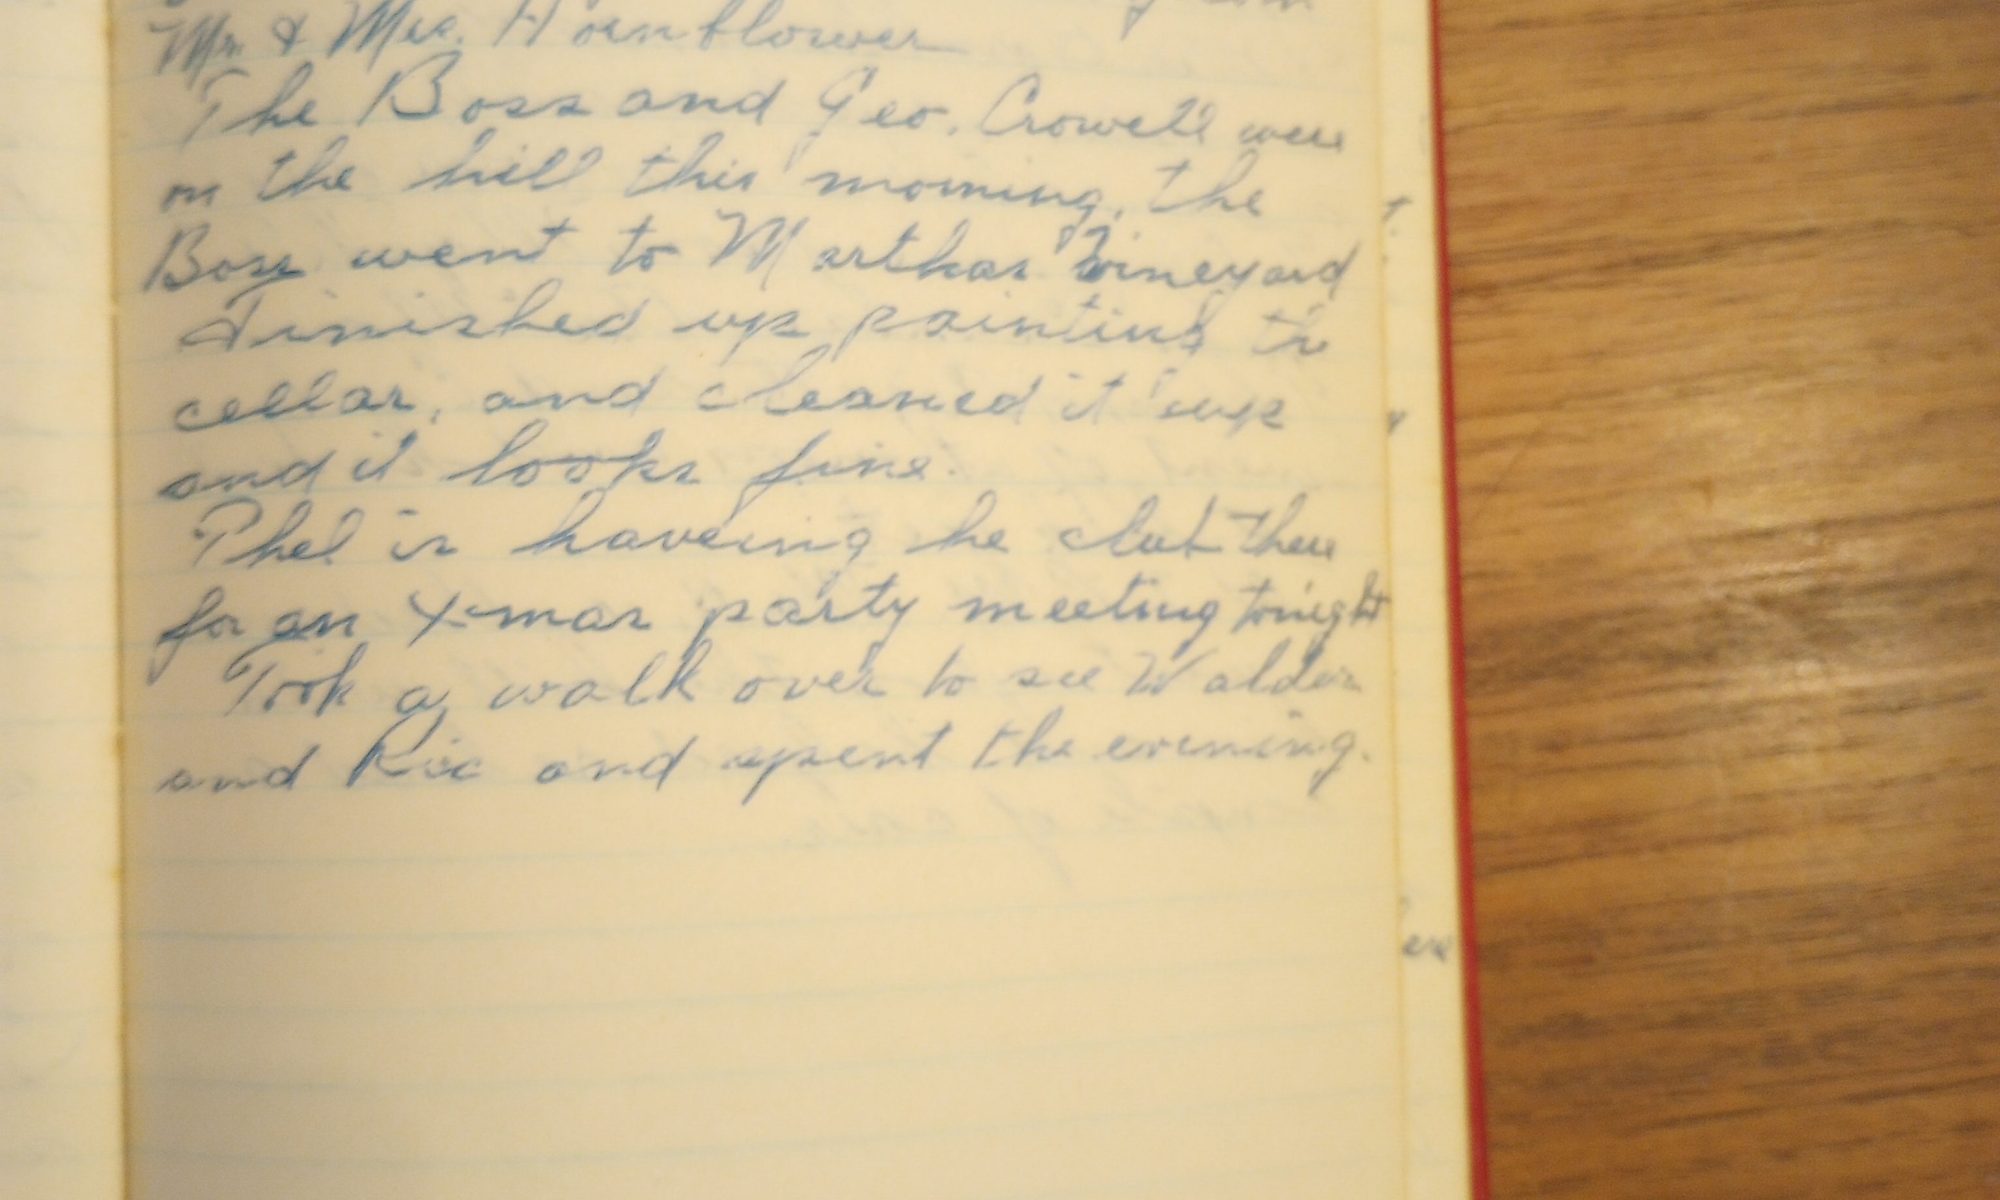 Mr. & Mrs. Hornblower
The Boss and Geo. Crowell were
on the hill this morning, the
Boss went to Marthas Vineyard
Finished up painting the
cellar, and cleaned it up
and it looks fine.
Phel is haveing he club there
for an X-mas party meeting tonight
Took a walk over to see Walder
and Ric and spent the evening.